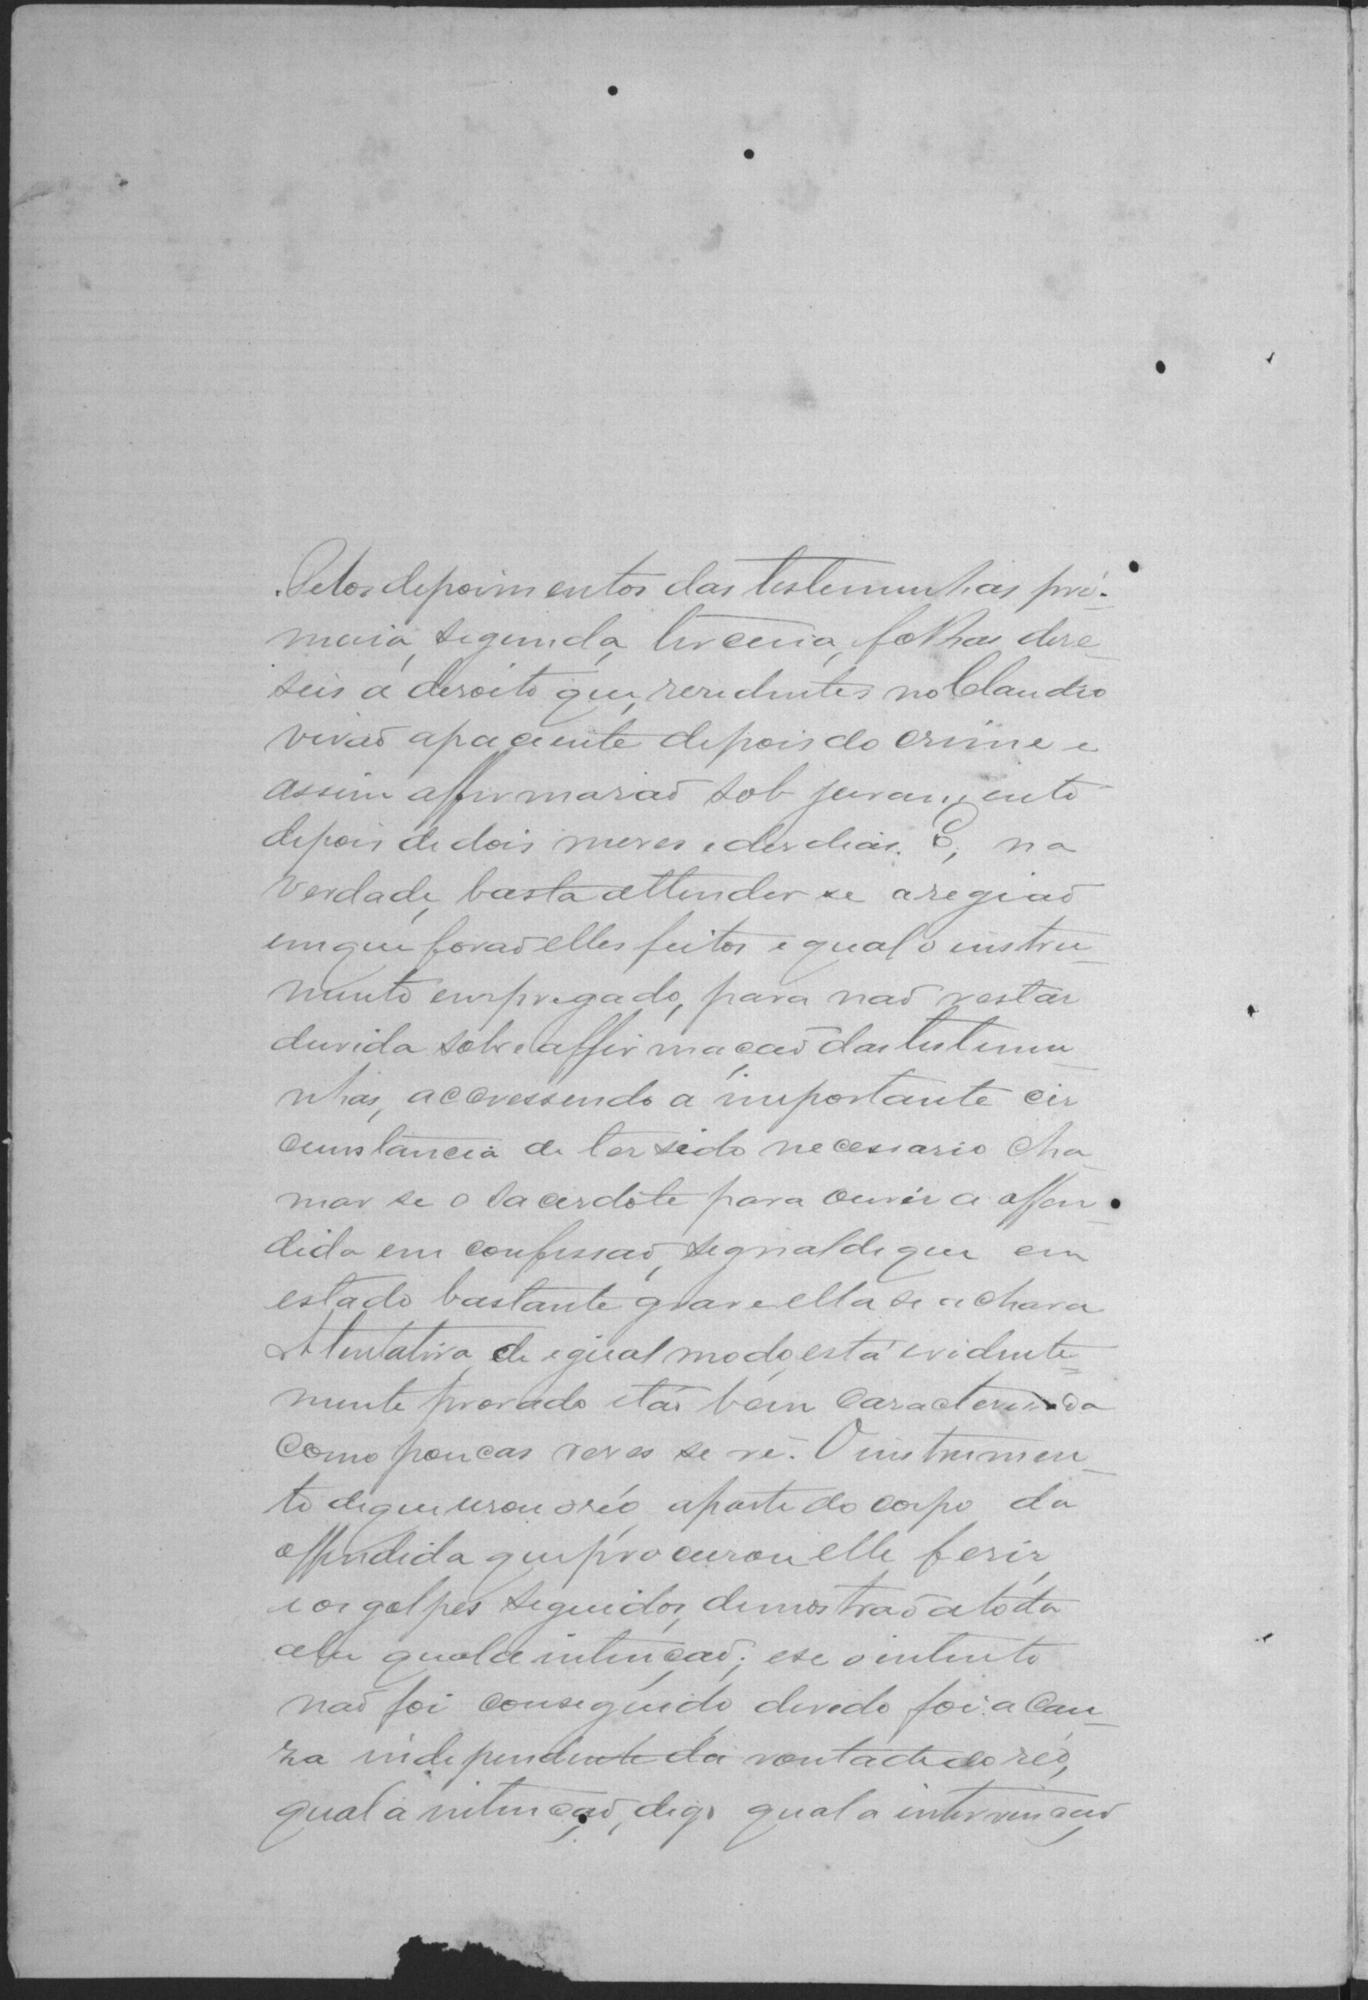 Pelos depoimentos das testemunhas pri-
meira, segunda, terceira, folhas deze-
seis a desoito que, rezidentes no Claudio
virão a paciente depois do crime e
assim affirmarão sob juramento
depois de dois mezes e dez dias. E, na
verdade, basta attender se a região
em que forão elles feitos e qual o instru-
mento empregado, para não restar
duvida sobre affirmação das testemu-
nhas, accressendo a importante cir
cunstancia de ter sido necessario cha-
mar se o sacerdote para ouvir a offen-
dida em confissão, signal de que em
estado bastante grave ella se achava
A tentativa de igual modo, está evidente-
mente provado e tão bem caracterisada
como poucas vezes se vê. O instrumen-
to de que usou o réo a parte do corpo da
offendida que procurou elle ferir,
e os golpes seguidos, demostrão a toda
a luz qual a intenção; e se o intento
não foi conseguido devido foi a cau-
za independente da vontade do réo,
qual a intenção, digo qual a intervenção